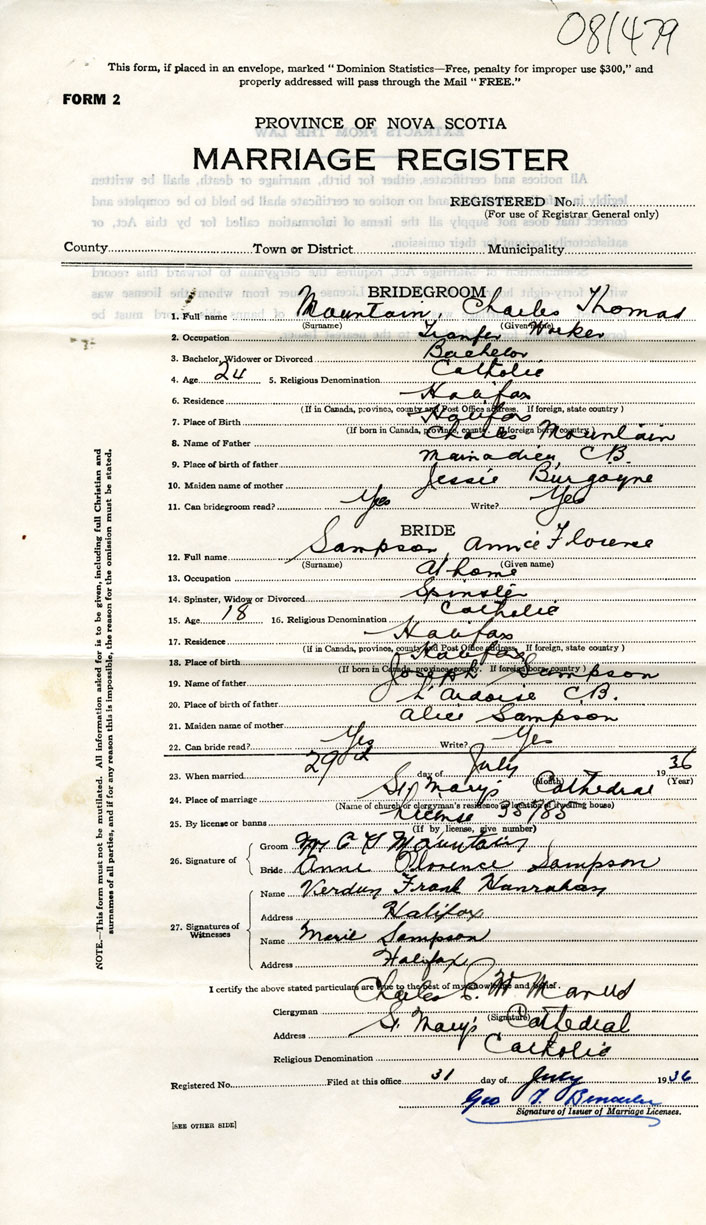 081479
This form, if placed in an envelope, marked "Dominion Statistics—Free, penalty for improper use $300," and
properly addressed will pass through the Mail "FREE."
FORM 2
PROVINCE OF NOVA SCOTIA
MARRIAGE REGISTER
REGISTERED No.
(For use of Registrar General only)
County Town or District Municipality
BRIDEGROOM
1. Full name Mountain, Charles Thomas
(Surname) (Given name)
2. Occupation Tranfer Worker
3. Bachelor, Widower or Divorced Bachelor
4. Age 24 5. Religious Denomination Catholic
6. Residence Halifax
(If in Canada, province, county and Post Office address. If foreign, state country)
7. Place of Birth Halifax
(If born in Canada, province, county. If foreign born, country)
8. Name of Father Charles Mountain
9. Place of birth of father Mainadieu C.B.
10. Maiden name of mother Jessie Burgoyne
11. Can bridegroom read? Yes Write? Yes
BRIDE
12. Full name Sampson, Annie Florence
(Surname) (Given name)
13. Occupation At home
14. Spinster, Widow or Divorced Spinster
15. Age 18 16. Religious Denomination Catholic
17. Residence Halifax
(If in Canada, province, county and Post Office address. If foreign, state country)
18. Place of birth Halifax
(If born in Canada, province, county. If foreign born, country)
19. Name of father Joseph Sampson
20. Place of birth of father L'Ardoise C.B.
21. Maiden name of mother Alice Sampson
22. Can bride read? Yes Write? Yes
23. When married 29th day of July 1936
(Month) (Year)
24. Place of marriage St. Mary's Cathedral
(Name of church or clergyman's residence or location of dwelling house)
25. By license or banns License 35785
(If by license, give number)
26. Signature of Groom Mr C T Mountain
Bride Anne Florence Sampson
27. Signatures of Witnesses
Name Frank Hanrahan
Address Halifax
Name Marie Sampson
Address Halifax
I certify the above stated particulars are true to the best of my knowledge and belief.
Clergyman Charles
(Signature)
Address St. Mary's Cathedral
Religious Denomination Catholic
Registered No. Filed at this office 31 day of July 1936
Geo T.
Signature of Issuer of Marriage Licenses.
[SEE OTHER SIDE]
NOTE.—This form must not be mutilated. All information asked for is to be given, including full Christian and
surnames of all parties, and if for any reason this is impossible, the reason for the omission must be stated.